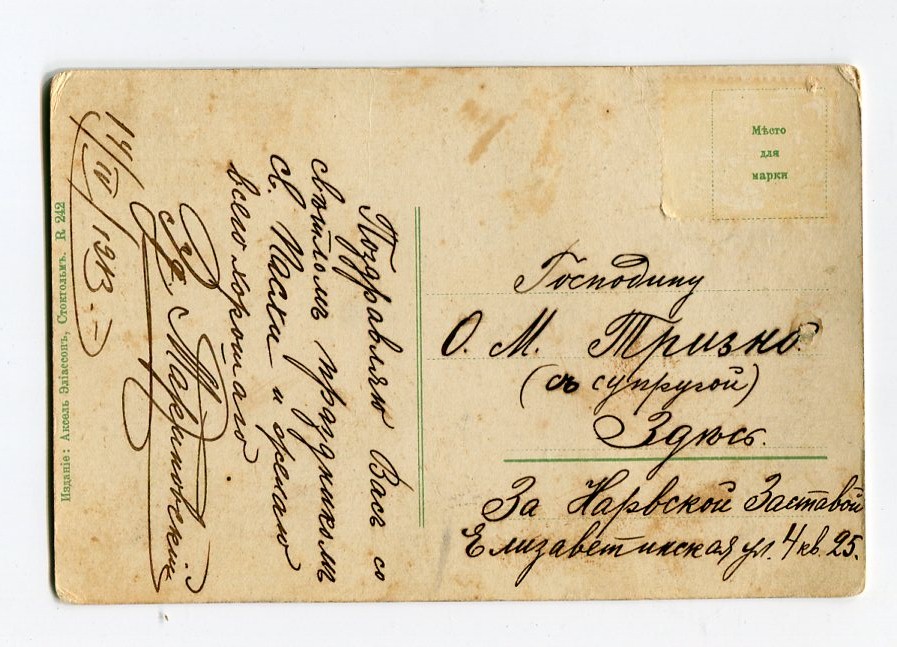 Мѣсто
для
марки
Господину
О. М. Тризно.
(съ супругой)
Здѣсь.
За Нарвской Заставой
Елизаветинская ул. 4 кв. 25.
Поздравляю Васъ со
свѣтлымъ праздникомъ
св. Пасхи и желаю
всего хорошаго
14/IV 1913.
Изданіе: Аксель Эліассонъ, Стокгольмъ. R 242